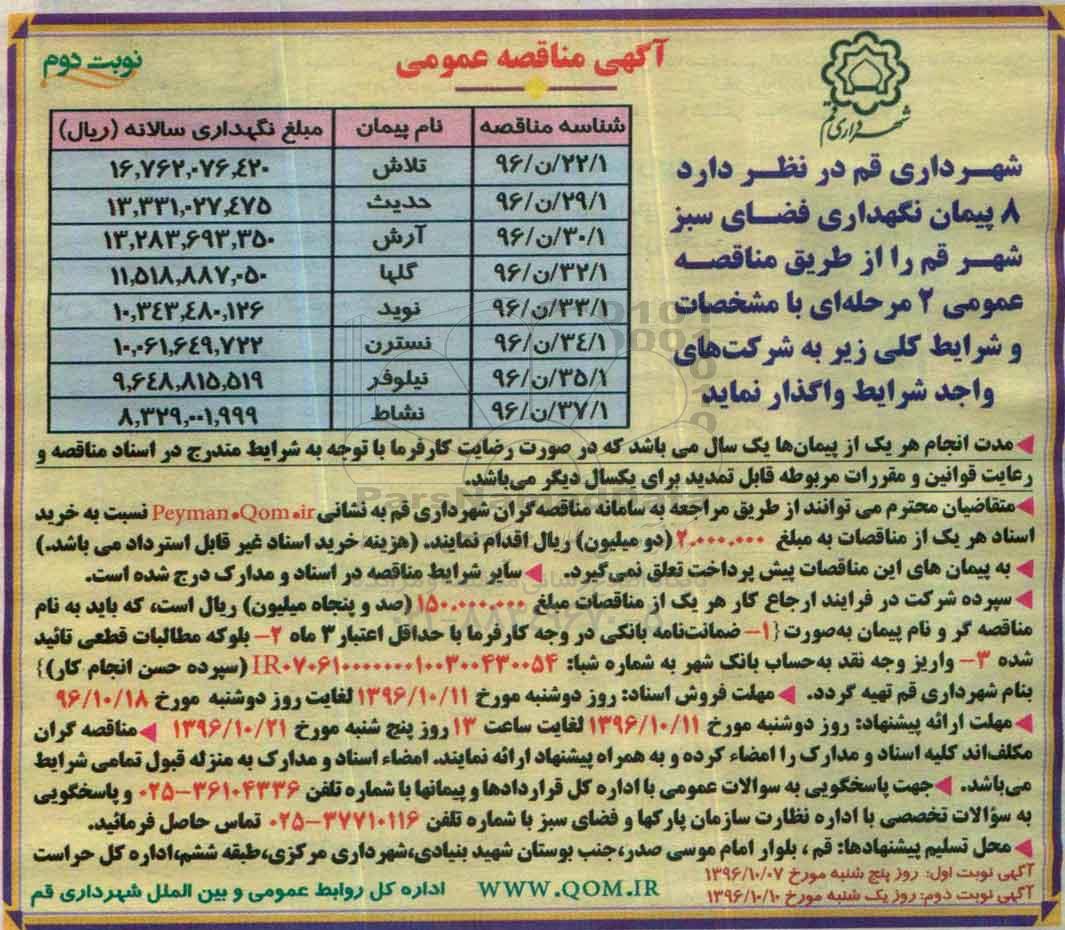 آگهی مناقصه عمومی
نوبت دوم
شهرداری قم
شهرداری قم در نظر دارد
۸ پیمان نگهداری فضای سبز
شهر قم را از طریق مناقصه
عمومی ۲ مرحله‌ای با مشخصات
و شرایط کلی زیر به شرکت‌های
واجد شرایط واگذار نماید
شناسه مناقصه نام پیمان مبلغ نگهداری سالانه (ریال)
۹۶/ن/۲۲/۱ تلاش ۱۶,۷۶۲,۰۷۶,۴۲۰
۹۶/ن/۲۹/۱ حدیث ۱۳,۳۳۱,۰۲۷,۴۷۵
۹۶/ن/۳۰/۱ آرش ۱۳,۲۸۳,۶۹۳,۳۵۰
۹۶/ن/۳۲/۱ گلها ۱۱,۵۱۸,۸۸۷,۰۵۰
۹۶/ن/۳۳/۱ نوید ۱۰,۳۴۳,۴۸۰,۱۲۶
۹۶/ن/۳۴/۱ نسترن ۱۰,۰۶۱,۶۴۹,۷۲۲
۹۶/ن/۳۵/۱ نیلوفر ۹,۶۴۸,۸۱۵,۵۱۹
۹۶/ن/۳۷/۱ نشاط ۸,۳۲۹,۰۰۱,۹۹۹
مدت انجام هر یک از پیمان‌ها یک سال می باشد که در صورت رضایت کارفرما با توجه به شرایط مندرج در اسناد مناقصه و
رعایت قوانین و مقررات مربوطه قابل تمدید برای یکسال دیگر می‌باشد.
متقاضیان محترم می توانند از طریق مراجعه به سامانه مناقصه‌گران شهرداری قم به نشانی Peyman.Qom.ir نسبت به خرید
اسناد هر یک از مناقصات به مبلغ ۲.۰۰۰.۰۰۰ (دو میلیون) ریال اقدام نمایند. (هزینه خرید اسناد غیر قابل استرداد می باشد.)
به پیمان های این مناقصات پیش پرداخت تعلق نمی‌گیرد. سایر شرایط مناقصه در اسناد و مدارک درج شده است.
سپرده شرکت در فرایند ارجاع کار هر یک از مناقصات مبلغ ۱۵۰.۰۰۰.۰۰۰ (صد و پنجاه میلیون) ریال است، که باید به نام
مناقصه گر و نام پیمان به‌صورت {۱- ضمانت‌نامه بانکی در وجه کارفرما با حداقل اعتبار ۳ ماه ۲- بلوکه مطالبات قطعی تائید
شده ۳- واریز وجه نقد به‌حساب بانک شهر به شماره شبا: IR۰۷۰۶۱۰۰۰۰۰۰۰۱۰۰۳۰۰۴۳۰۰۵۴ (سپرده حسن انجام کار)}
بنام شهرداری قم تهیه گردد. مهلت فروش اسناد: روز دوشنبه مورخ ۱۳۹۶/۱۰/۱۱ لغایت روز دوشنبه مورخ ۹۶/۱۰/۱۸
مهلت ارائه پیشنهاد: روز دوشنبه مورخ ۱۳۹۶/۱۰/۱۱ لغایت ساعت ۱۳ روز پنج شنبه مورخ ۱۳۹۶/۱۰/۲۱ مناقصه گران
مکلف‌اند کلیه اسناد و مدارک را امضاء کرده و به همراه پیشنهاد ارائه نمایند. امضاء اسناد و مدارک به منزله قبول تمامی شرایط
می‌باشد. جهت پاسخگویی به سوالات عمومی با اداره کل قراردادها و پیمانها با شماره تلفن ۳۶۱۰۴۳۳۶-۰۲۵ و پاسخگویی
به سؤالات تخصصی با اداره نظارت سازمان پارکها و فضای سبز با شماره تلفن ۳۷۷۱۰۱۱۶-۰۲۵ تماس حاصل فرمائید.
محل تسلیم پیشنهادها: قم ، بلوار امام موسی صدر،جنب بوستان شهید بنیادی،شهرداری مرکزی،طبقه ششم،اداره کل حراست
آگهی نوبت اول: روز پنج شنبه مورخ ۱۳۹۶/۱۰/۰۷
آگهی نوبت دوم: روز یک شنبه مورخ ۱۳۹۶/۱۰/۱۰
WWW.QOM.IR
اداره کل روابط عمومی و بین الملل شهرداری قم